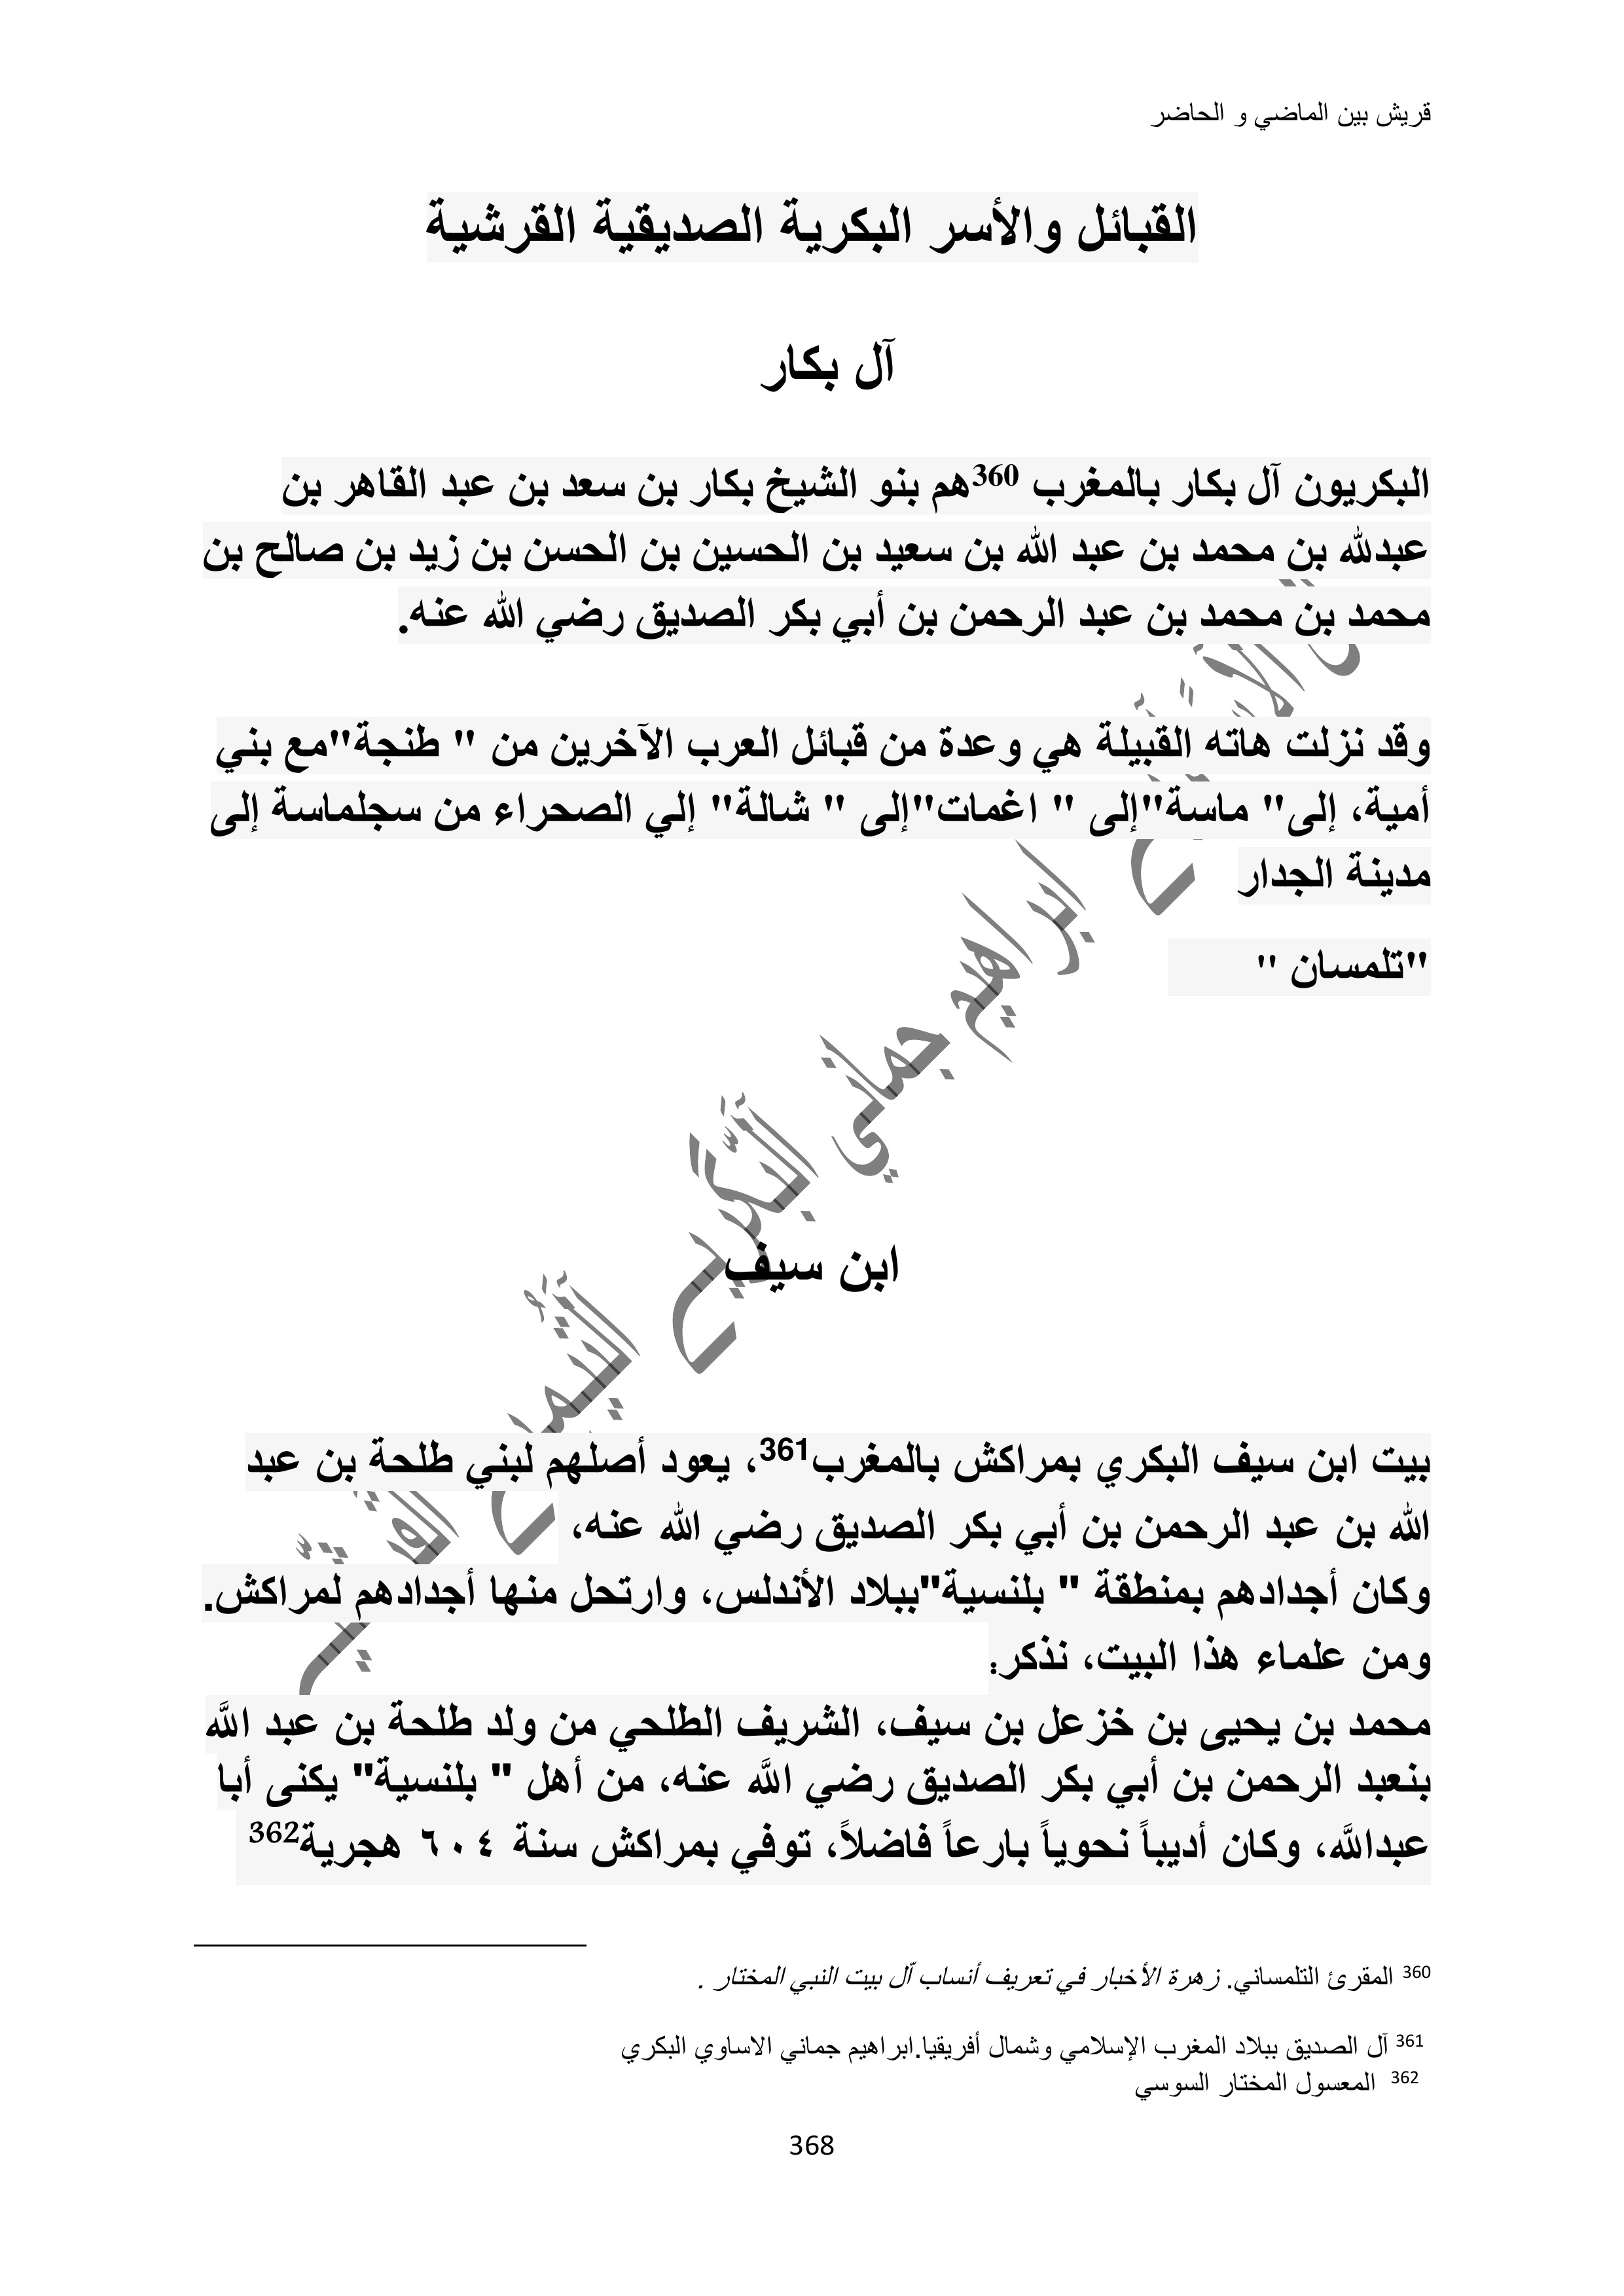 قريش بين الماضي و الحاضر
القبائل والأسر البكرية الصديقية القرشية
آل بكار
البكريون آل بكار بالمغرب 360هم بنو الشيخ بكار بن سعد بن عبد القاهر بن
عبدلله بن محمد بن عبد الله بن سعيد بن الحسين بن الحسن بن زيد بن صالح بن
محمد بن محمد بن عبد الرحمن بن أبي بكر الصديق رضي الله عنه.
وقد نزلت هاته القبيلة هي وعدة من قبائل العرب الآخرين من " طنجة"مع بني
أمية، إلى" ماسة"إلى " اغمات"إلى " شالة" إلي الصحراء من سجلماسة إلى
مدينة الجدار
"تلمسان "
ابراهيم جماني البكري التيمي القرشي
ابن سيف
بيت ابن سيف البكري بمراكش بالمغرب361، يعود أصلهم لبني طلحة بن عبد
الله بن عبد الرحمن بن أبي بكر الصديق رضي الله عنه،
وكان أجدادهم بمنطقة " بلنسية"ببلاد الأندلس، وارتحل منها أجدادهم لمراكش.
ومن علماء هذا البيت، نذكر:
محمد بن يحيى بن خزعل بن سيف، الشريف الطلحي من ولد طلحة بن عبد اللَّه
بنعبد الرحمن بن أبي بكر الصديق رضي اللَّه عنه، من أهل " بلنسية" يكنى أبا
عبداللَّه، وكان أديباً نحوياً بارعاً فاضلاً، توفي بمراكش سنة ٦٠٤ هجرية362
360 المقرئ التلمساني. زهرة الأخبار في تعريف أنساب آل بيت النبي المختار .
361 آل الصديق ببلاد المغرب الإسلامي وشمال أفريقيا.ابراهيم جماني الاساوي البكري
362 المعسول المختار السوسي
368